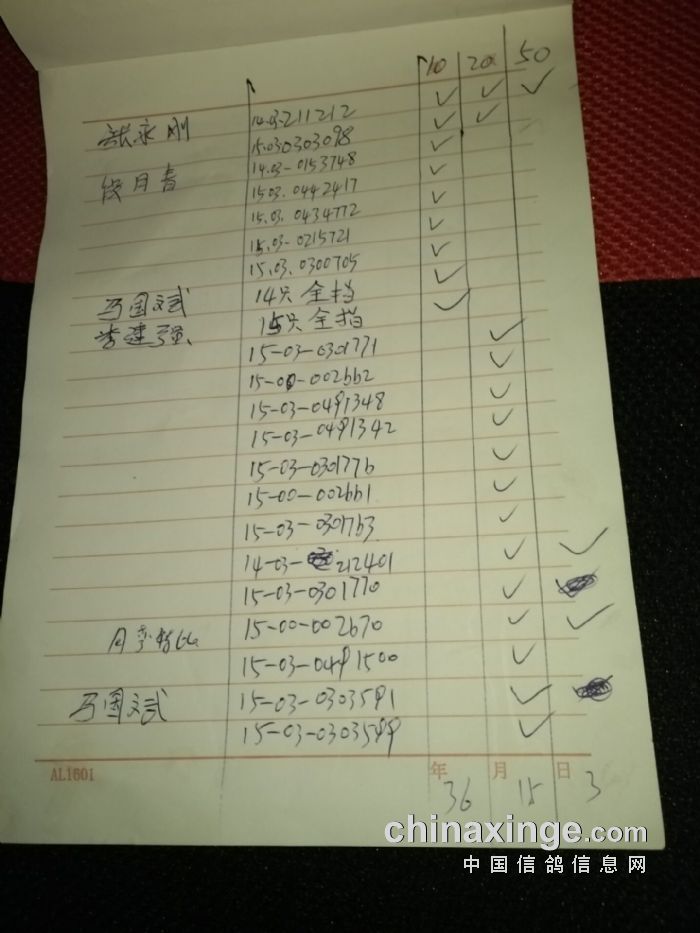 10 20 50
张永刚 14-03-211212 ✓ ✓ ✓
15.030303098 ✓ ✓
段月青 14.03-0153748 ✓
1503.0442417 ✓
15.03.0434772 ✓
15.03-0215721 ✓
15.03.0300705 ✓
马国文武 14只全挡 ✓
李建强 15只全挡 ✓
15-03-0301771 ✓
15-00-002662 ✓
15-03-0491348 ✓
15-03-0491342 ✓
15-03-0301776 ✓
15-00-002661 ✓
15-03-0301763 ✓
14-03-212401 ✓ ✓
15-03-0301770 ✓
15-00-002670 ✓ ✓
15-03-0491500 ✓
马国文武 15-03-0303591 ✓
15-03-0303599 ✓
AL1601 年 月 日
36 15 3
chinaxinge.com
中国信鸽信息网